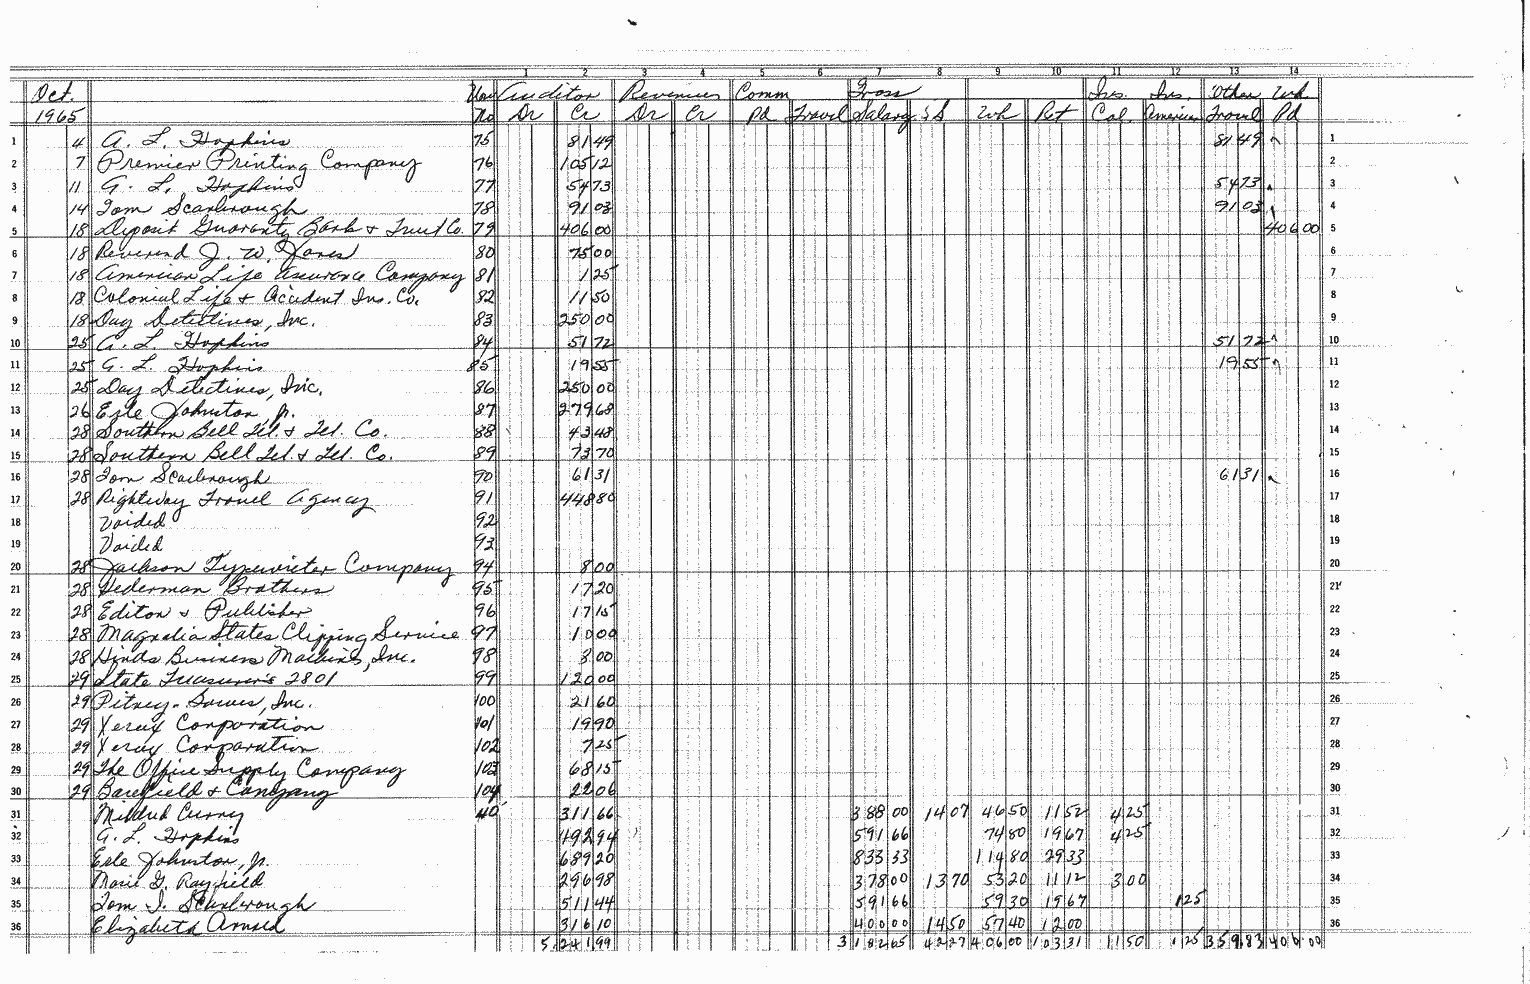 1 2 3 4 5 6 7 8 9 10 11 12 13 14
Oct. Auditor Revenues Comm Gross Ins. Ins. Other Wh.
1965 No Dr Cr Dr Cr Pd Travel Salary SS Wh Ret Col. American Travel Pd
1 4 A. L. Hopkins 75 81 49 81 49 1
2 7 Premier Printing Company 76 105 12 2
3 11 A. L. Hopkins 77 54 73 54 73 3
4 14 Tom Scarbrough 78 91 03 91 03 4
5 18 Deposit Guaranty Bank & Trust Co. 79 406 00 406 00 5
6 18 Reverend J. W. Jones 80 75 00 6
7 18 American Life Assurance Company 81 1 25 7
8 18 Colonial Life & Accident Ins. Co. 82 11 50 8
9 18 Day Detectives, Inc. 83 250 00 9
10 25 A. L. Hopkins 84 51 72 51 72 10
11 25 A. L. Hopkins 85 19 55 19 55 11
12 25 Day Detectives, Inc. 86 250 00 12
13 26 Erle Johnston, Jr. 87 279 68 13
14 28 Southern Bell Tel. & Tel. Co. 88 43 48 14
15 28 Southern Bell Tel. & Tel. Co. 89 73 70 15
16 28 Tom Scarbrough 90 61 31 61 31 16
17 28 Rightway Travel Agency 91 448 80 17
18 Voided 92 18
19 Voided 93 19
20 28 Jackson Typewriter Company 94 8 00 20
21 28 Hederman Brothers 95 17 20 21
22 28 Editor & Publisher 96 17 15 22
23 28 Magnolia States Clipping Service 97 10 00 23
24 28 Hinds Business Machines, Inc. 98 3 00 24
25 29 State Treasurer's 2801 99 120 00 25
26 29 Pitney-Bowes, Inc. 100 21 60 26
27 29 Xerox Corporation 101 19 90 27
28 29 Xerox Corporation 102 7 25 28
29 29 The Office Supply Company 103 68 15 29
30 29 Barefield & Company 104 22 06 30
31 Mildred Curry 40 311 66 388 00 14 07 46 50 11 52 4 25 31
32 A. L. Hopkins 492 94 591 66 74 80 19 67 4 25 32
33 Erle Johnston, Jr. 689 20 833 33 114 80 29 33 33
34 Marie G. Rayfield 296 98 378 00 13 70 53 20 11 12 3 00 34
35 Tom J. Scarbrough 511 44 591 66 59 30 19 67 1 25 35
36 Elizabeth Arnold 316 10 400 00 14 50 57 40 12 00 36
5,241 99 3 182 65 42 27 406 00 103 31 11 50 1 25 359 83 406 00